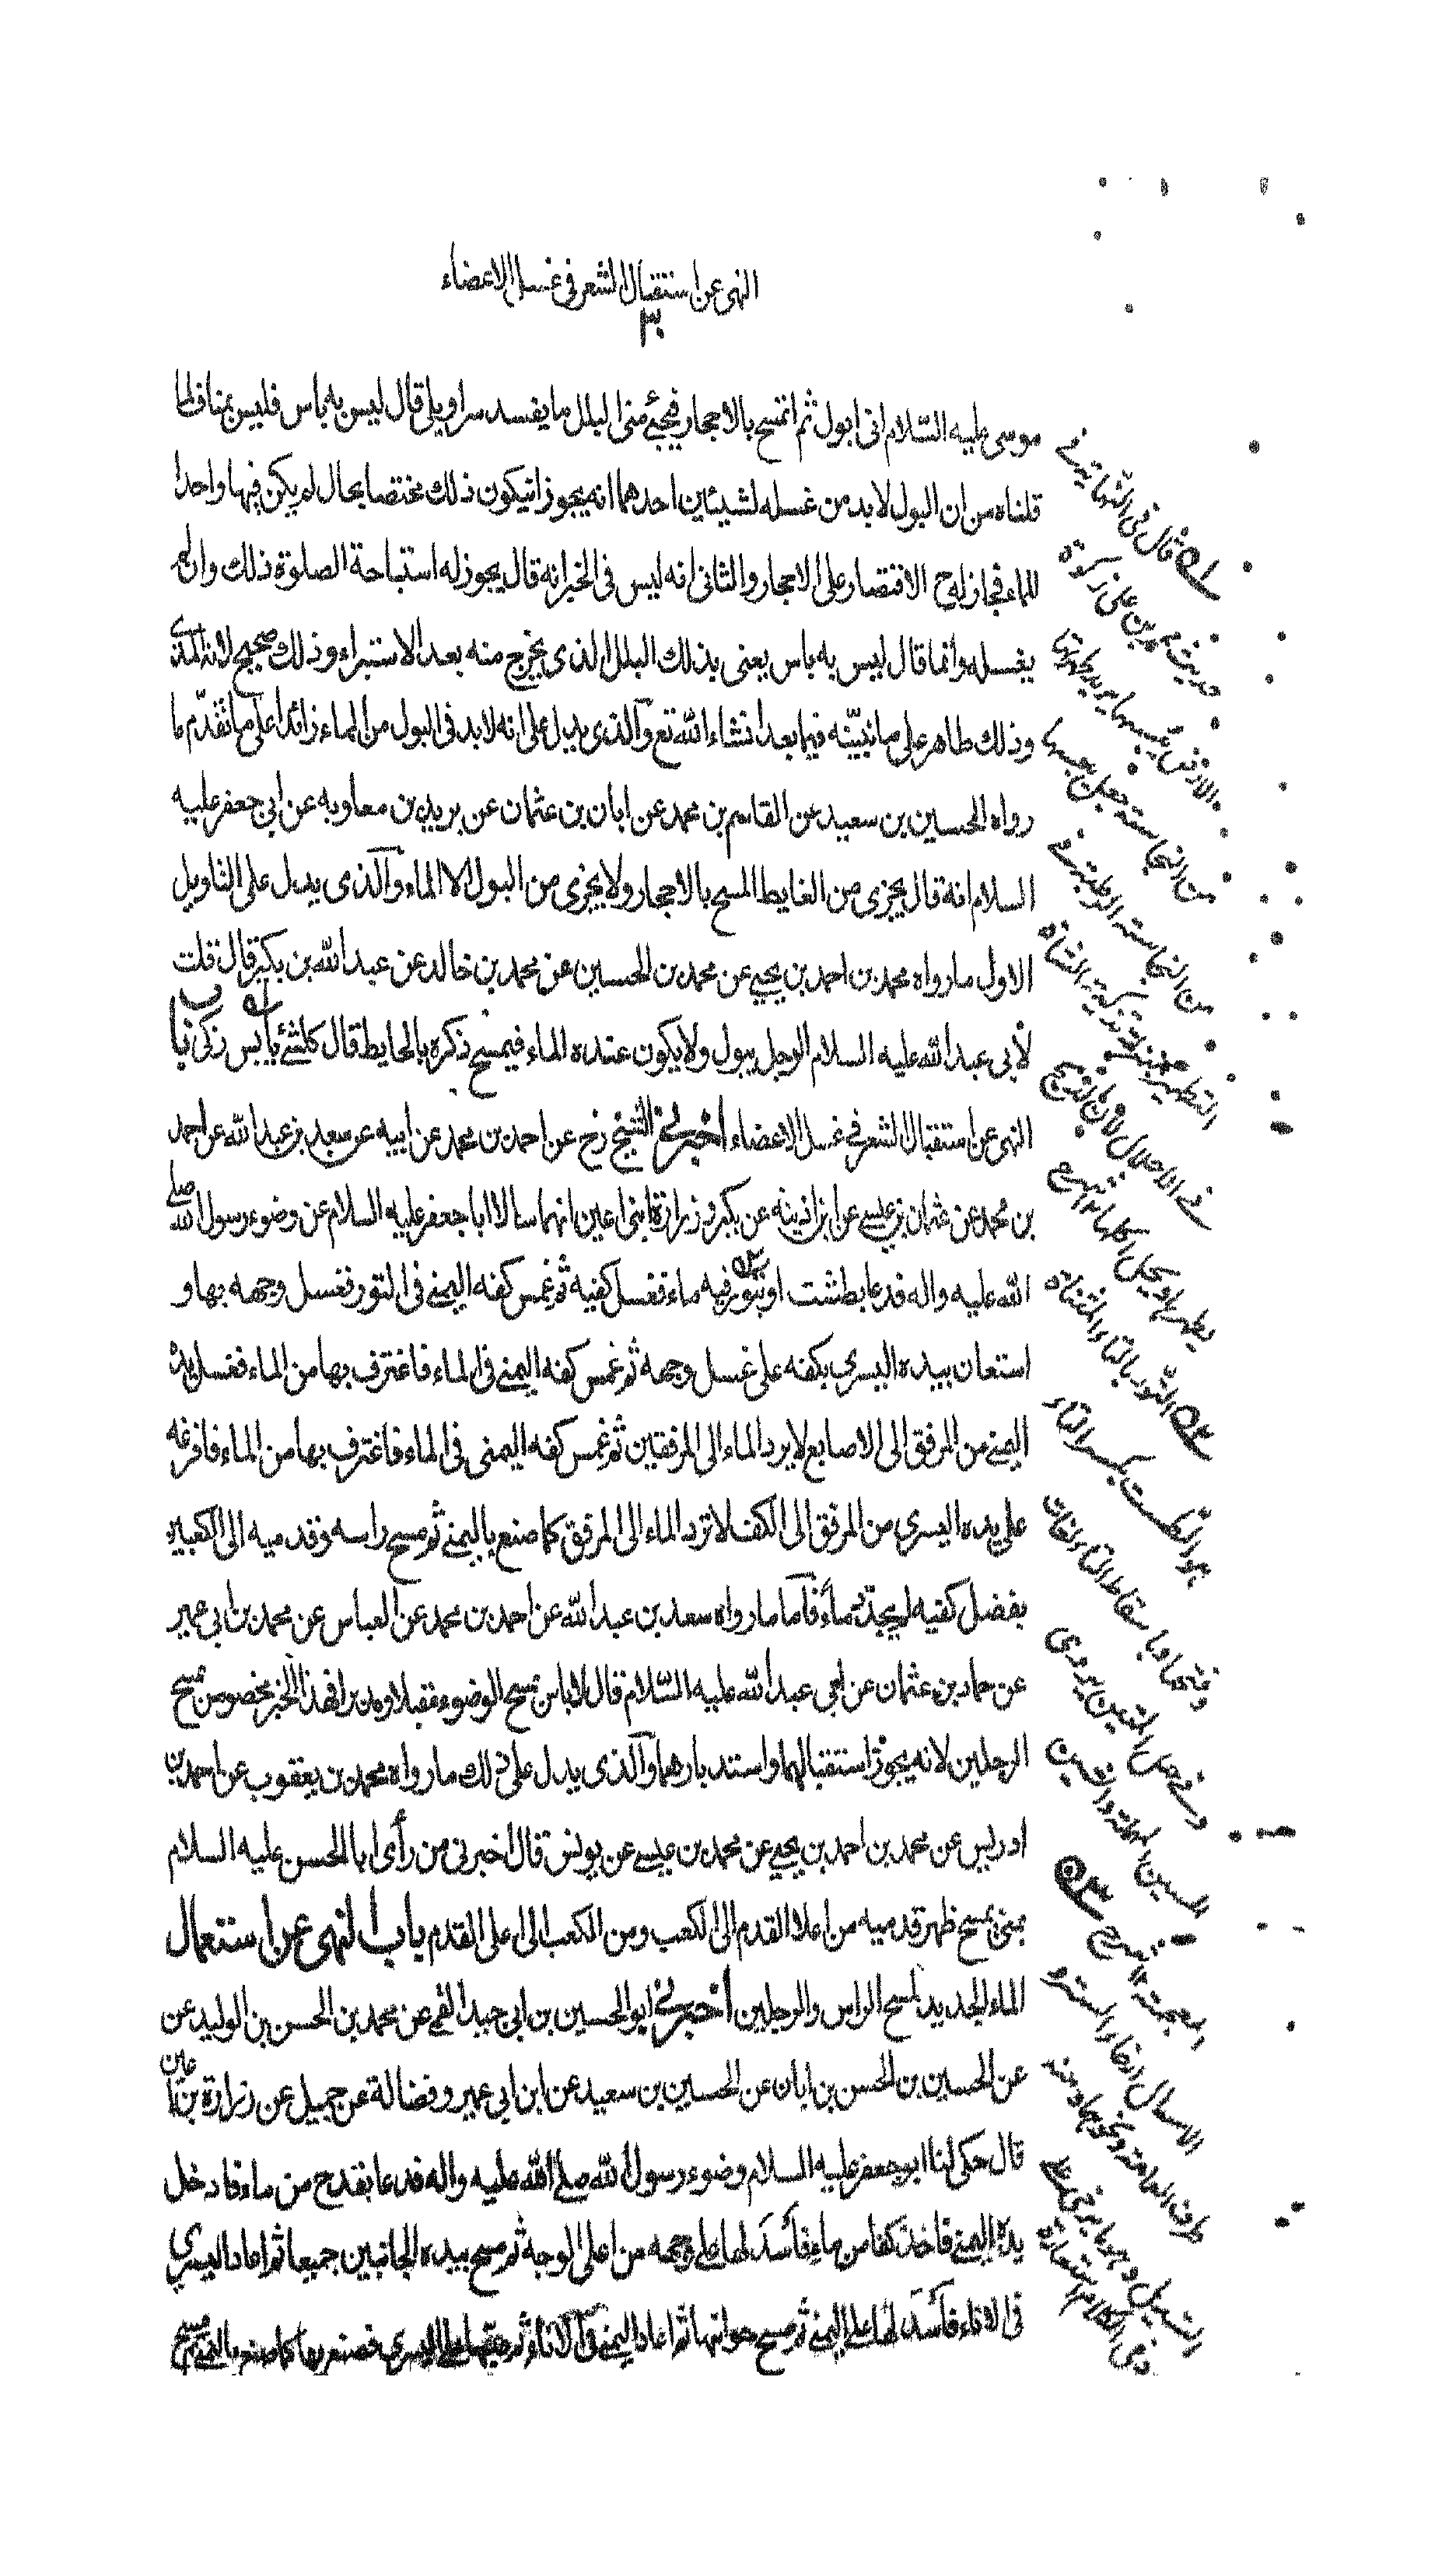 النهى عن استقبال الشعر فى غسل الاعضاء
٣٠
موسى عليه السّلام انى ابول ثم اتمسح بالاحجار فيجئ منى البلل ما يفسد سراويلى قال ليس به باس فليس بمناف لما
قلناه من ان البول لابد من غسله لشيئين احدهما انه يجوز ان يكون ذلك مختصا بحال لم يكن فيها واجدا
للماء فجاز له ح الاقتصار على الاحجار والثانى انه ليس فى الخبر انه قال يجوز له استباحة الصلوة بذلك وان لم
يغسله وانما قال ليس به باس يعنى بذلك البلل الذى يخرج منه بعد الاستبراء وذلك صحيح لانه المذى
وذلك طاهر على ما نبيّنه فيما بعد انشاء الله تع والذى يدل على انه لابد فى البول من الماء زائدا على ما تقدّم ما
رواه الحسين بن سعيد عن القاسم بن محمد عن ابان بن عثمان عن بريد بن معاويه عن ابى جعفر عليه
السلام انه قال يجزى من الغايط المسح بالاحجار ولا يجزى من البول الا الماء والذى يدل على التاويل
الاول ما رواه محمد بن احمد بن يحيى عن محمد بن الحسين عن محمد بن خالد عن عبد الله بن بكير قال قلت
لأبى عبد الله عليه السلام الرجل يبول ولا يكون عنده الماء فيمسح ذكره بالحايط قال كلشئ يابس زكى باب
النهى عن استقبال الشعر فى غسل الاعضاء اخبرنى الشيخ رح عن احمد بن محمد عن ابيه عن سعد بن عبد الله عن احمد
بن محمد عن عثمان بن عيسى عن ابن اذينه عن بكير و زرارة ابنى اعين انهما سالا ابا جعفر عليه السلام عن وضوء رسول الله صلى
الله عليه واله فدعا بطشت او بتور فيه ماء فغسل كفيه ثم غمس كفه اليمنى فى التور فغسل وجهه بها و
استعان بيده اليسرى بكفه على غسل وجهه ثم غمس كفه اليمنى فى الماء فاغترف بها من الماء فغسل يده
اليمنى من المرفق الى الاصابع لا يرد الماء الى المرفقين ثم غمس كفه اليمنى فى الماء فاغترف بها من الماء فافرغه
على يده اليسرى من المرفق الى الكف لا يرد الماء الى المرفق كما صنع باليمنى ثم مسح راسه وقدميه الى الكعبين
بفضل كفيه لم يجدّد ماءً فاما ما رواه سعد بن عبد الله عن احمد بن محمد عن العباس عن محمد بن ابى عمير
عن حماد بن عثمان عن ابى عبد الله عليه السّلام قال لا باس بمسح الوضوء مقبلا ومدبرا فهذا الخبر مخصوص بمسح
الرجلين لانه يجوز استقبالهما واستدبارهما والذى يدل على ذلك ما رواه محمد بن يعقوب عن احمد بن
ادريس عن محمد بن احمد بن يحيى عن محمد بن عيسى عن يونس قال اخبرنى من رأى ابا الحسن عليه السلام
بمنى يمسح ظهر قدميه من اعلا القدم الى الكعب ومن الكعب الى اعلى القدم باب النهى عن استعمال
الماء الجديد لمسح الراس والرجلين اخبرنى ابو الحسين بن ابى جيد القمى عن محمد بن الحسن بن الوليد عن
عن الحسين بن الحسن بن ابان عن الحسين بن سعيد عن ابن ابى عمير و فضالة عن جميل عن زرارة بن اعين
قال حكى لنا ابو جعفر عليه السلام وضوء رسول الله صلى الله عليه واله فدعا بقدح من ماء فادخل
يده اليمنى فاخذ كفا من ماء فأسدلها على وجهه من اعلى الوجه ثم مسح بيده الجانبين جميعا ثم اعاد اليسرى
فى الاناء فأسدلها على اليمنى ثم مسح جوانبها ثم اعاد اليمنى فى الاناء ثم صبها على اليسرى فصنع بها كما صنع باليمنى ثم مسح
٥١ قال فى النهاية فى
حديث محمد بن على زكوة
الارض يبسها يريد طهارتها
من النجاسة
من النجاسة الرطبة فى
التطهير بمنزلة تذكية الشاة
فى الاحلال لان الذبح
يطهرها ويحل اكلها
٥٢ التور بالتاء المثناة
هو الطست بكسر الطاء
وفتحها وباسقاط التاء لغات
السين المهملة والشين
٥٣
المعجمة
الاسدال ارخاء الستر و